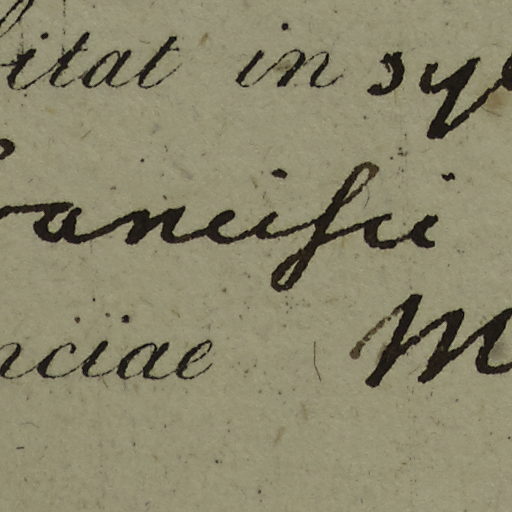 bitat in syl
ancisci
nciae M